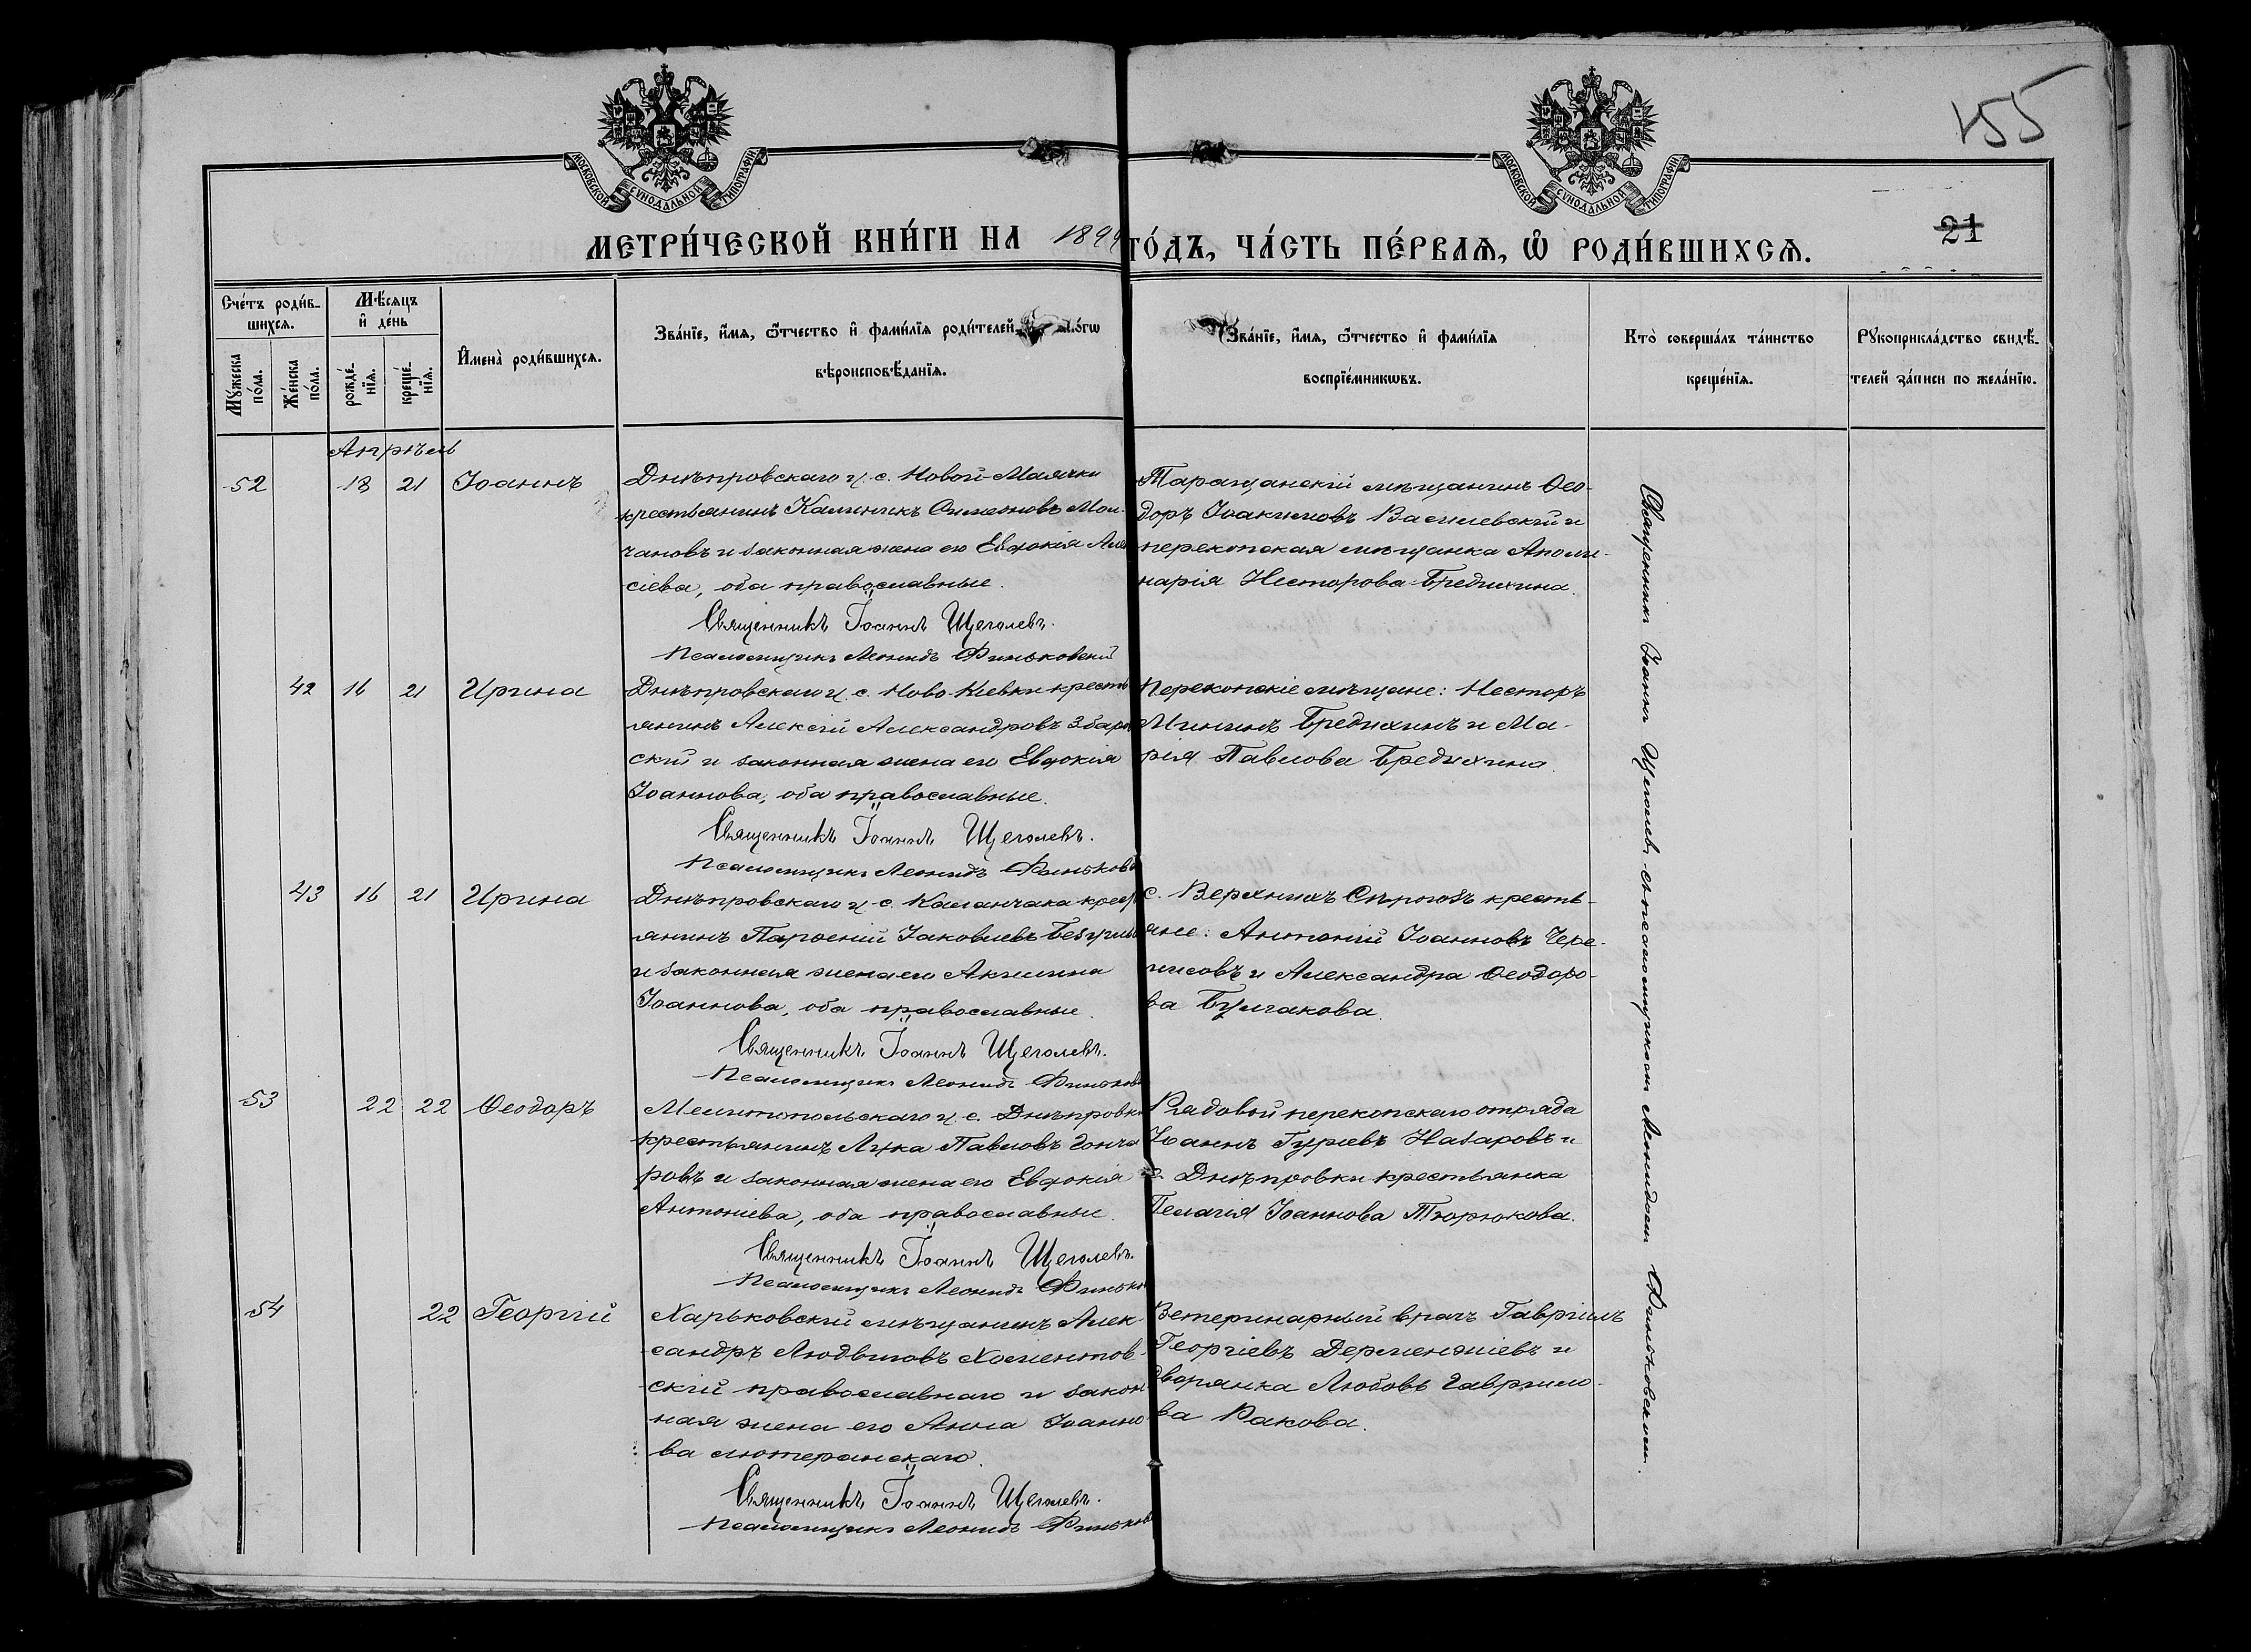 155
МОСКОВСКОЙ СУНОДАЛЬНОЙ ТИПОГРАФІИ
МОСКОВСКОЙ СУНОДАЛЬНОЙ ТИПОГРАФІИ
21
МЕТРИ́ЧЕСКОЙ КНИ́ГИ НА 1899 ГО́ДЪ, ЧА́СТЬ ПЕ́РВАѦ, Ѡ҆ РОДИ́ВШИХСѦ.
Счéтъ роди́в-
шихсѧ.
Мꙋ́жеска по́ла.
Же́нска по́ла.
Мѣ́сѧцъ
и҆ де́нь
рожде́-
нїѧ.
креще́-
нїѧ.
И҆мена̀ роди́вшихсѧ.
Зва́нїе, и҆́мѧ, ѻ҆́тчество и҆ фами́лїѧ роди́телей
вѣроисповѣ́данїѧ.
Зва́нїе, и҆́мѧ, ѻ҆́тчество и҆ фами́лїѧ
воспрїе́мникѡвъ.
Кто̀ соверша́лъ та́инство
креще́нїѧ.
Рꙋкоприкла́дство свидѣ́-
телей за́писи по жела́нїю.
Апрѣль
52 18 21 Іоаннъ
Днѣпровскаго у. с. Новой-Маячки
крестьянинъ Калиникъ Симеоновъ Мол-
чановъ и законная жена его Евдокія Але
сіева, оба православные.
Священникъ Іоаннъ Щеголевъ.
Псаломщикъ Леонидъ Финьковскій
Таращанскій мѣщанинъ Ѳео-
доръ Іоакимовъ Василевскій и
перекопская мѣщанка Аполи-
нарія Несторова Бредихина.
42 16 21 Ирина
Днѣпровскаго у. с. Ново Кіевки кресть
янинъ Алексій Александровъ Збараж
скій и законная жена его Евдокія
Іоаннова, оба православные.
Священникъ Іоаннъ Щеголевъ.
Псаломщикъ Леонидъ Финьков
Перекопскіе мѣщане: Несторъ
Мининъ Бредихинъ и Ма-
рія Павлова Бредихина.
43 16 21 Ирина
Днѣпровскаго у. с. Каланчака крест
янинъ Парѳеній Іаковлевъ
и законная жена его Акилина
Іоаннова, оба православные.
Священникъ Іоаннъ Щеголевъ.
Псаломщикъ Леонидъ Финьков
с. Верхнихъ Сѣрогозъ кресть-
яне: Антоній Іоанновъ Чере-
мисовъ и Александра Ѳеодоро-
ва Булгакова.
53 22 22 Ѳеодоръ
Мелитопольскаго у. с. Днѣпровки
крестьянинъ Лука Павловъ Гонча
ровъ и законная жена его Евдокія
Антоніева, оба православные.
Священникъ Іоаннъ Щеголевъ.
Псаломщикъ Леонидъ Финьков
Рядовой перекопскаго отряда
Іоаннъ Гуріевъ Назаровъ и
с. Днѣпровки крестьянка
Пелагія Іоаннова Тюрюкова.
54 22 Георгій
Харьковскій мѣщанинъ Алек-
сандръ Людвиговъ Хоментов-
скій православнаго и закон
ная жена его Анна Іоанно
ва лютеранскаго.
Священникъ Іоаннъ Щеголевъ.
Псаломщикъ Леонидъ Финьков
Ветеринарный врачъ Гавріилъ
Георгіевъ Дерменжіевъ и
дворянка Любовь Гавріило-
ва Ракова.
Священникъ Іоаннъ Щеголевъ съ псаломщикомъ Леонидомъ Финьковскимъ.